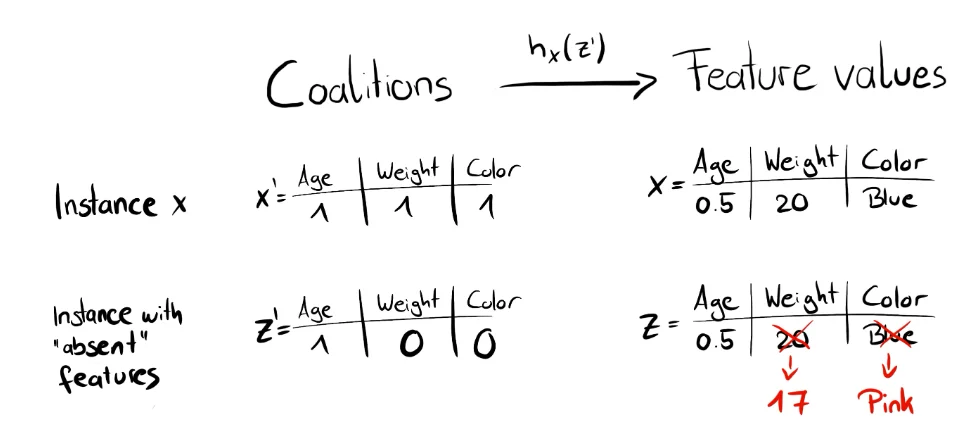 Coalitions hx(z') Feature values
Instance x x' = Age Weight Color x = Age Weight Color
1 1 1 0.5 20 Blue
Instance with "absent" features z' = Age Weight Color z = Age Weight Color
1 0 0 0.5 20 Blue
17 Pink